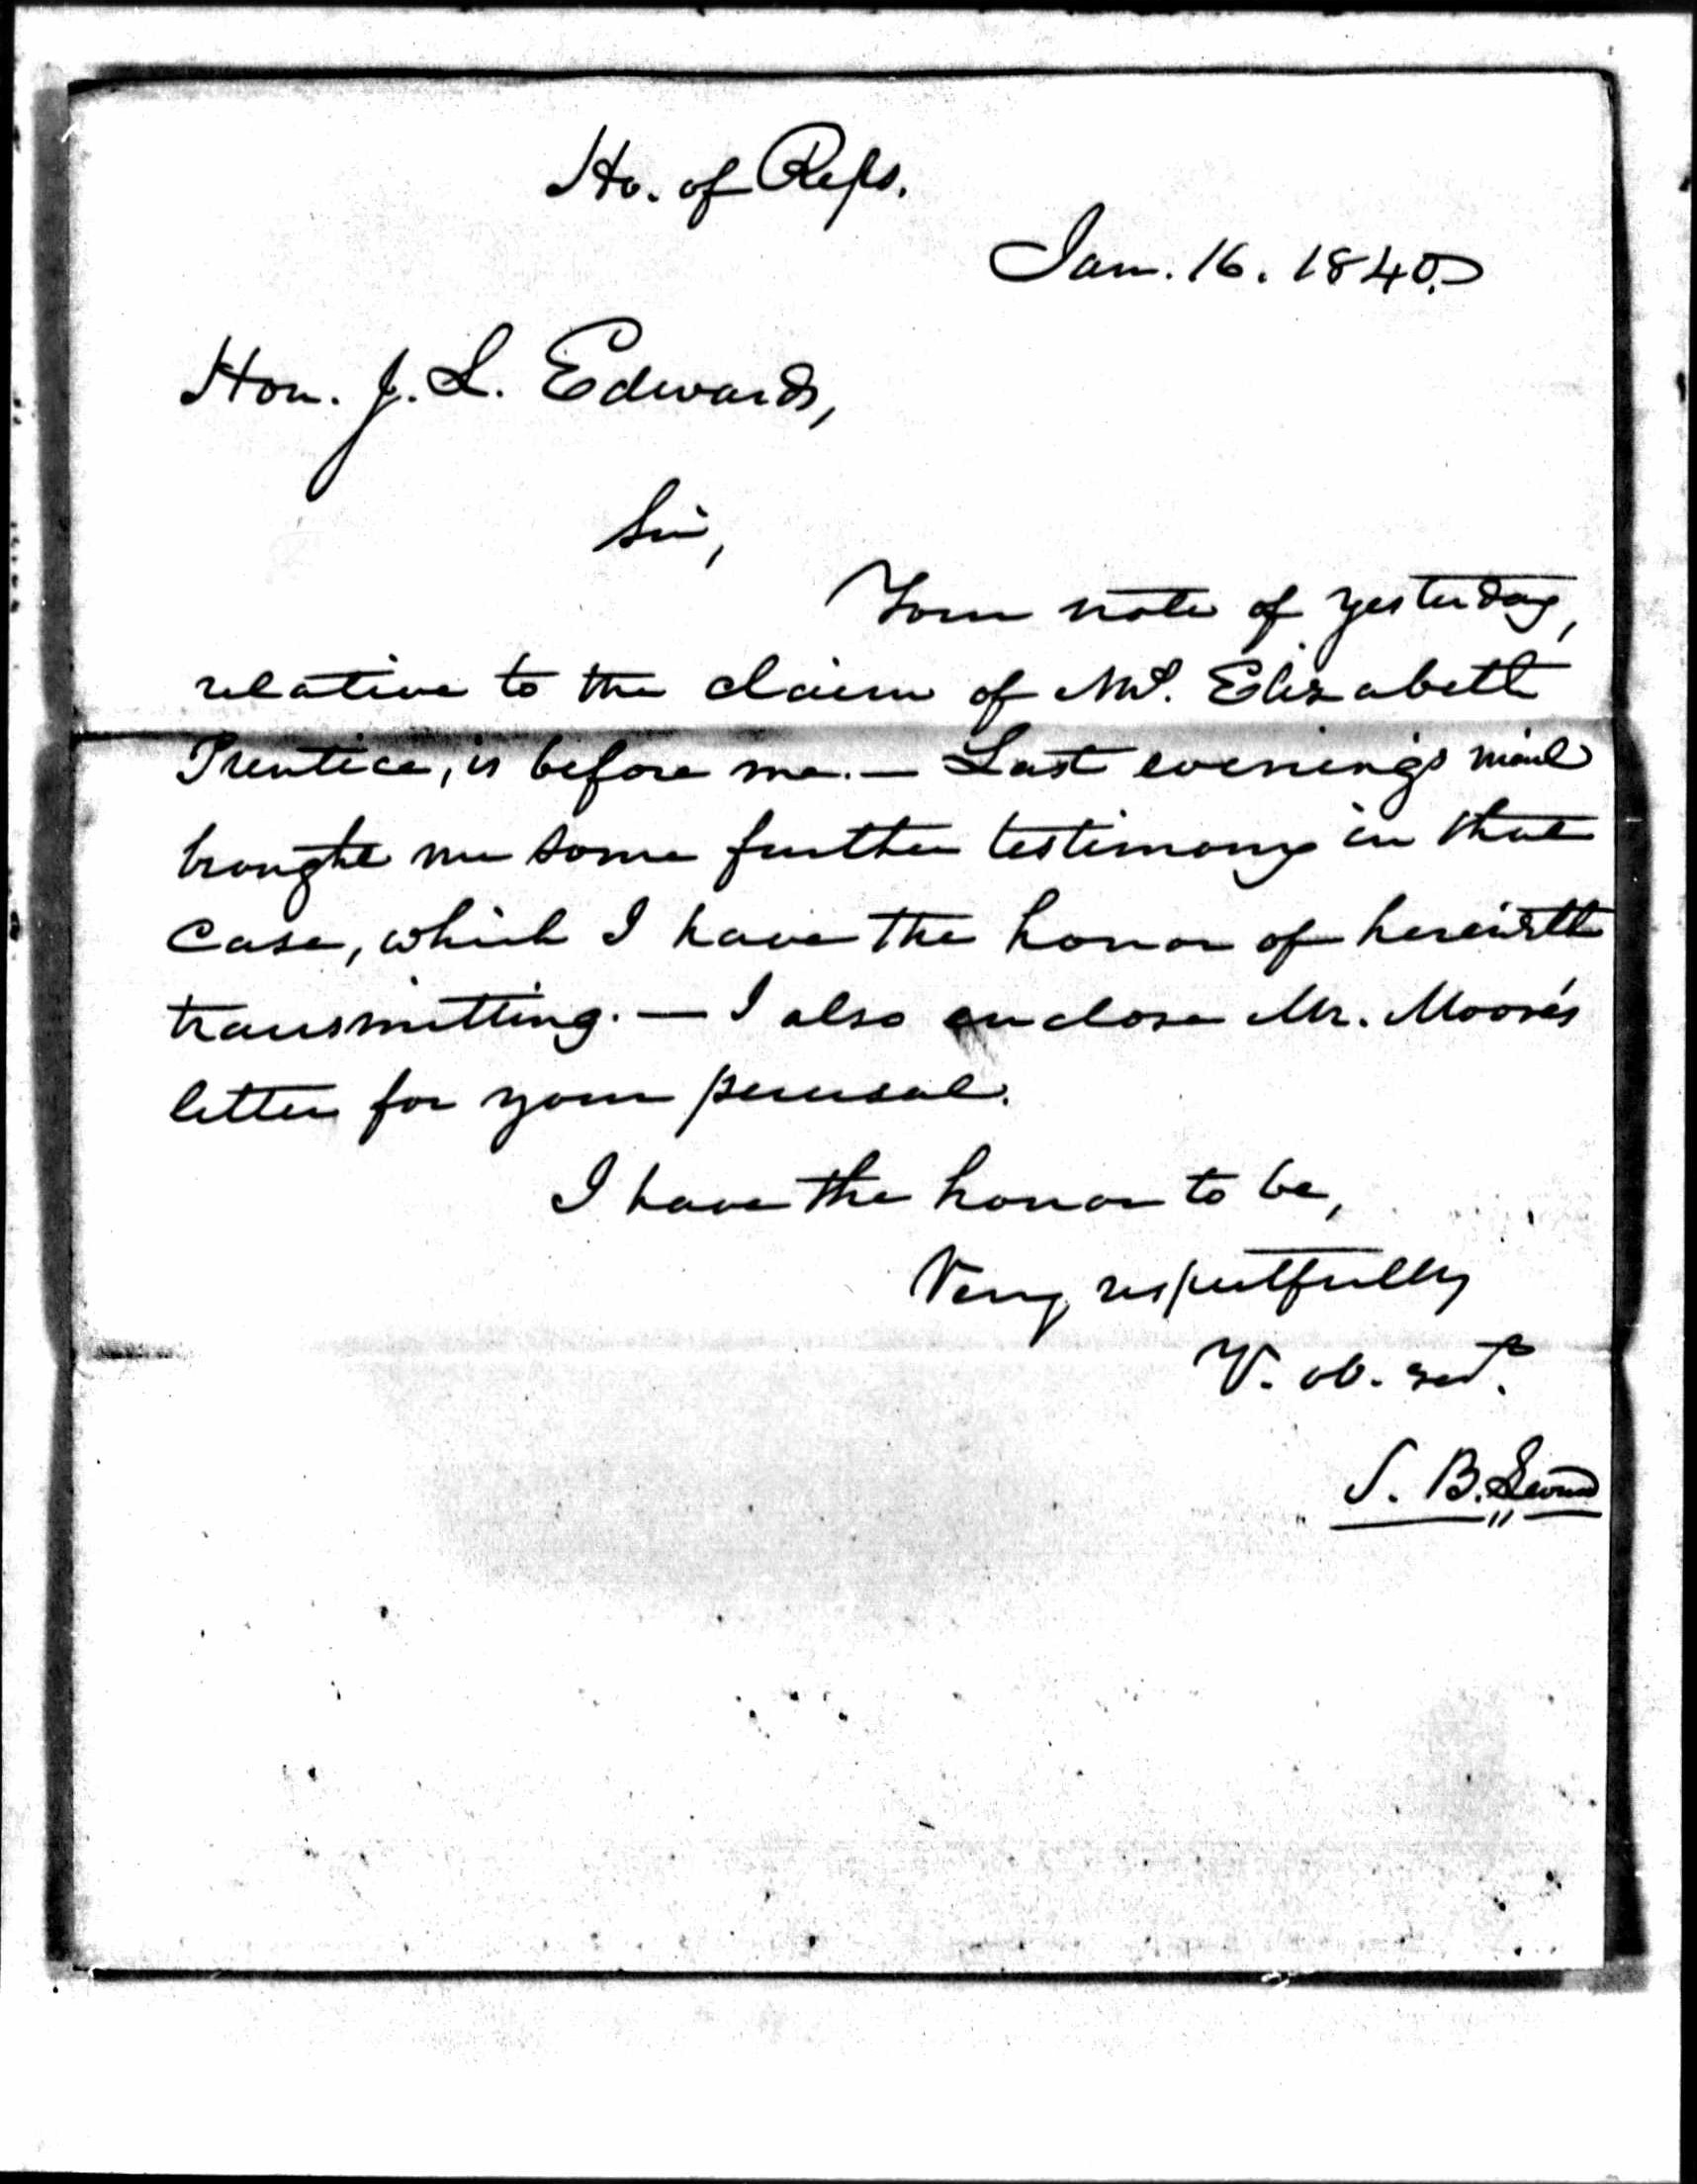 Ho. of Reps.
Jan. 16. 1840.
Hon. J. L. Edwards,
Sir,
Your note of yesterday,
relative to the claim of Mrs. Elizabeth
Prentice, is before me. — Last evening's mail
brought me some further testimony in that
case, which I have the honor of herewith
transmitting. — I also enclose Mr. Moore's
letter for your perusal.
I have the honor to be,
Very respectfully
Y. ob. svt.
S. B.